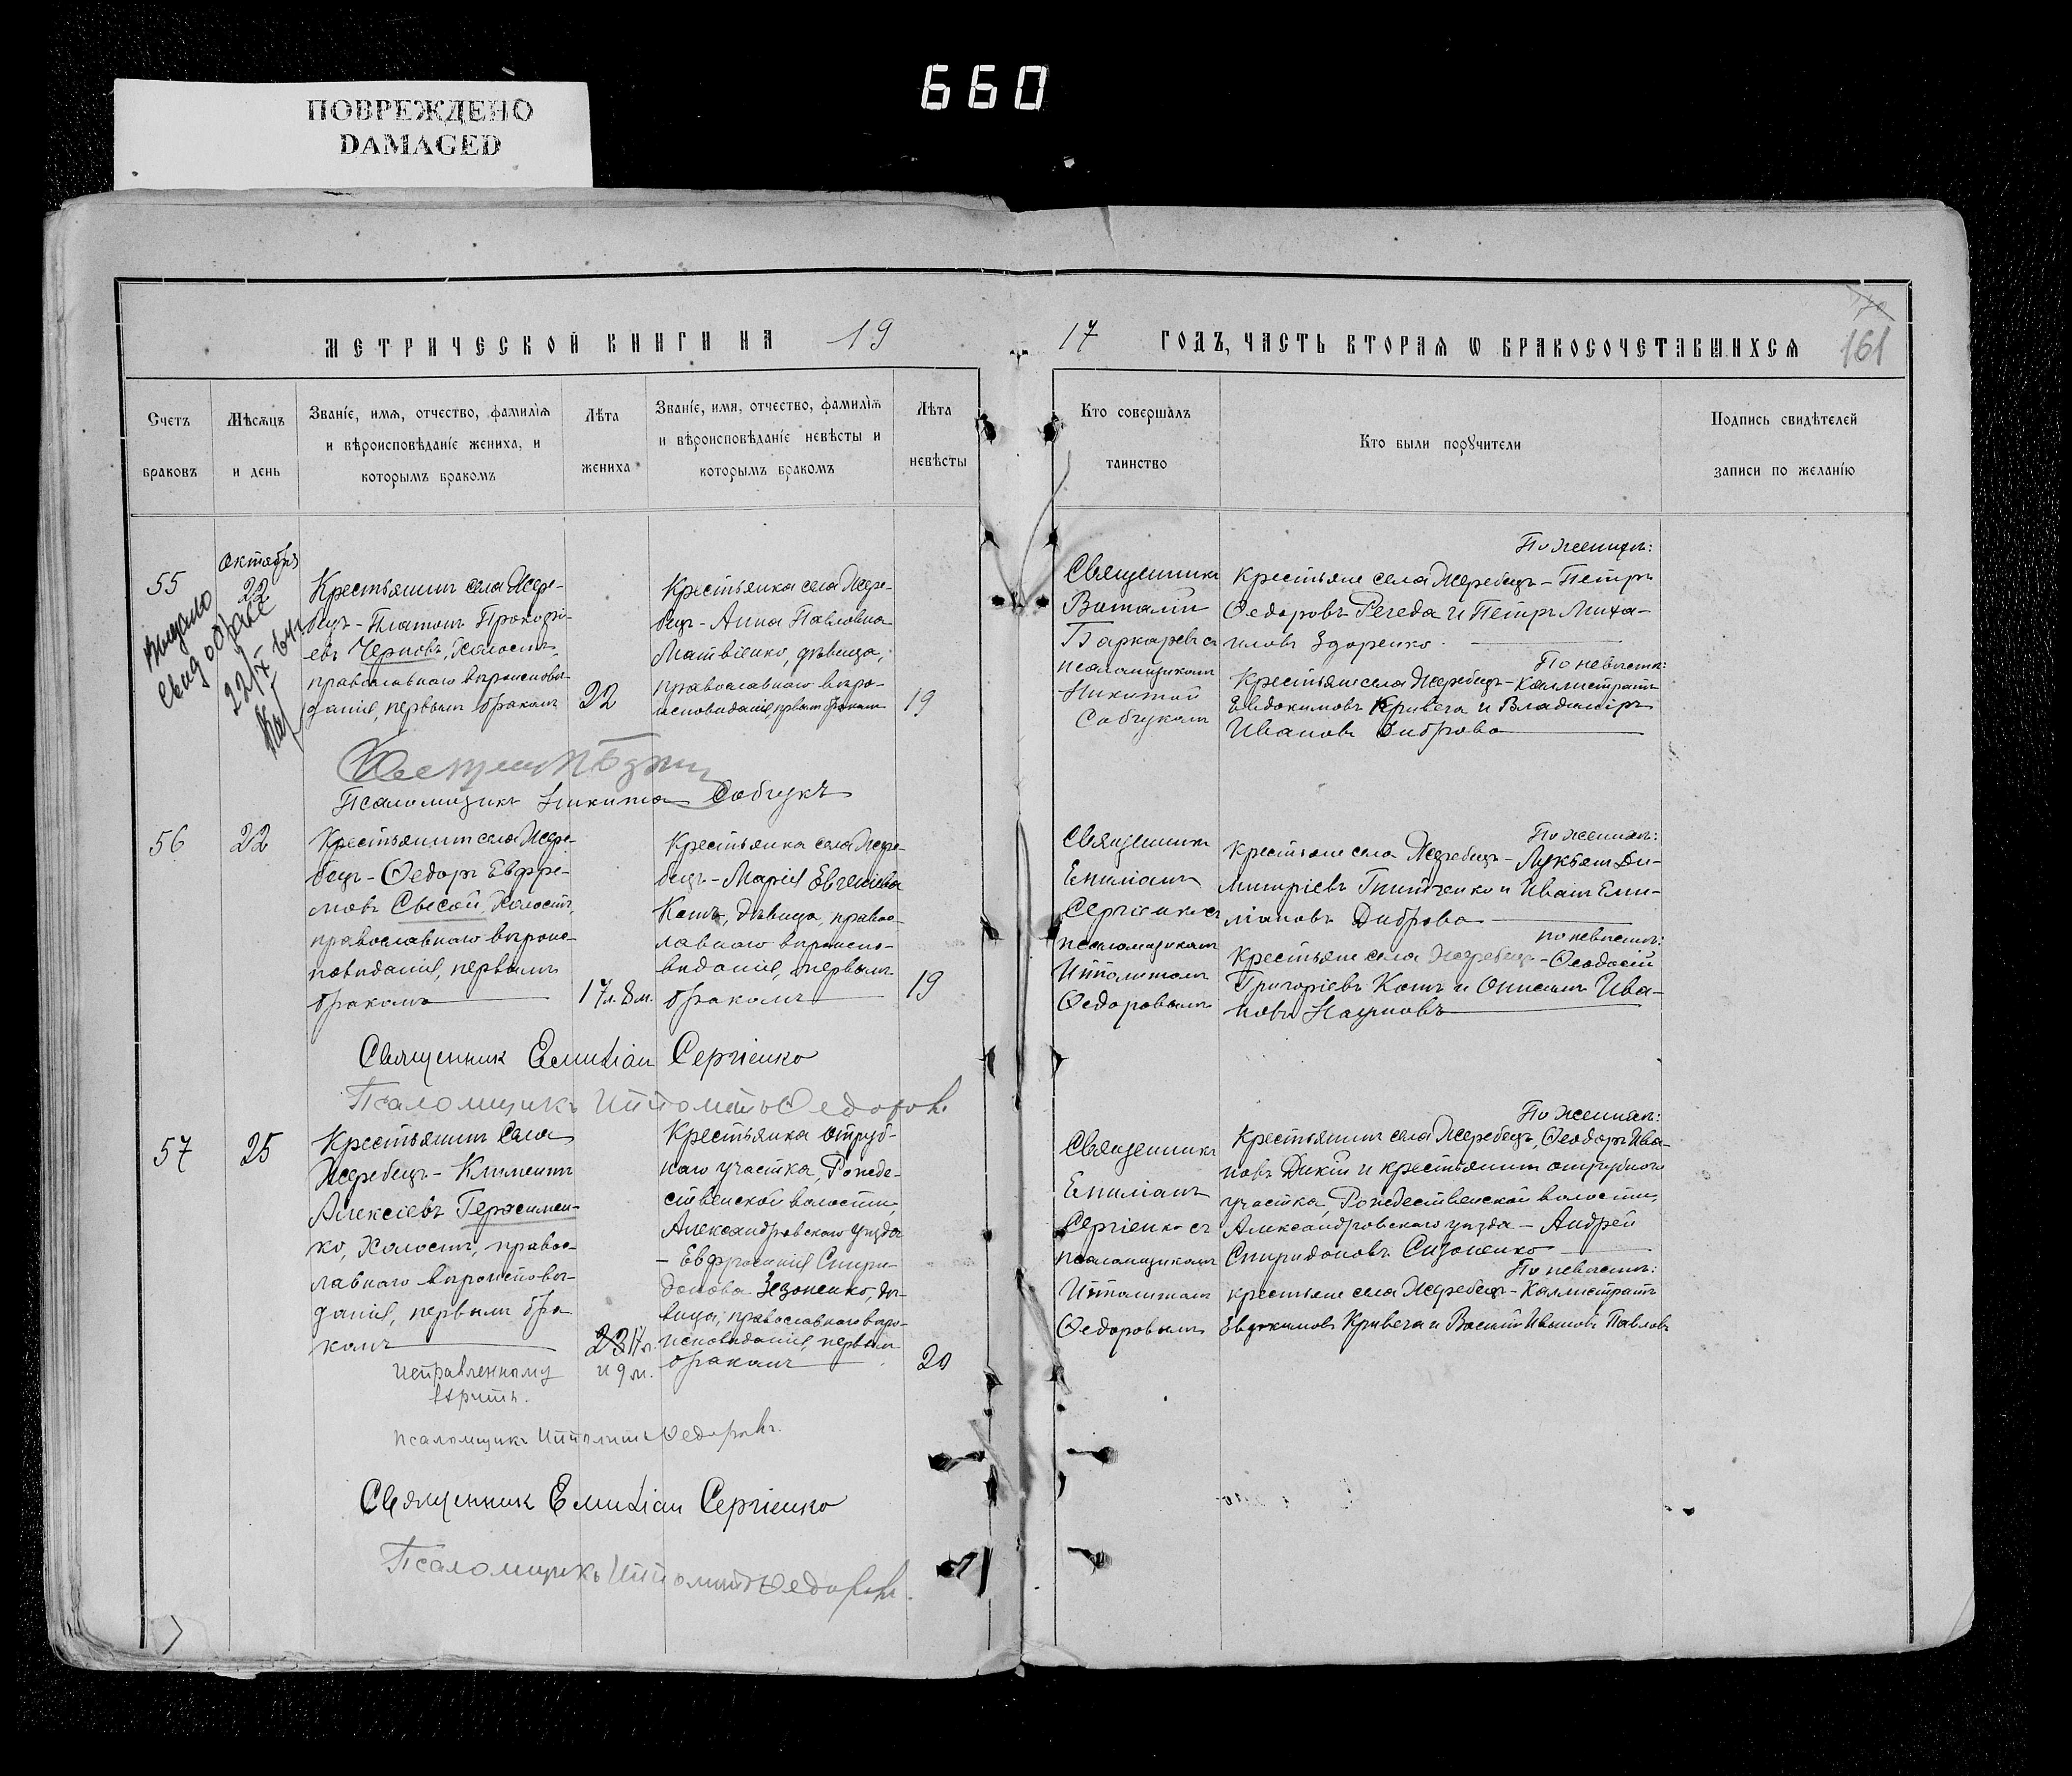 660
ПОВРЕЖДЕНО
DAMAGED
МЕТРИЧЕСКОЙ КНИГИ НА 19
17 ГОДЪ, ЧАСТЬ ВТОРАЯ Ѡ БРАКОСОЧЕТАВШИХСЯ
161
Счетъ
браковъ
Мѣсяцъ
и день
Званіе, имя, отчество, фамилія
и вѣроисповѣданіе жениха, и
которымъ бракомъ
Лѣта
жениха
Званіе, имя, отчество, фамилія
и вѣроисповѣданіе невѣсты и
которымъ бракомъ
Лѣта
невѣсты
Кто совершалъ
таинство
Кто были порꙋчители
Подпись свидѣтелей
записи по желанію
55
Октября
22
Выдано
22/X
Крестьянинъ села Жере-
бецъ - Платонъ Прокофі-
евъ Черновъ, холостъ,
православнаго вѣроисповѣ-
данія, первымъ бракомъ
22
Крестьянка села Жере-
бецъ - Анна Павловна
Матвіенко, дѣвица,
православнаго вѣро-
исповѣданія, первымъ бракомъ
19
Священникъ
Виталій
съ
псаломщикомъ
Никитой
Собчукомъ
По женихѣ:
Крестьяне села Жеребецъ - Петръ
Ѳедоровъ Регеда и Петръ Миха-
иловъ Здоренко
По невѣстѣ:
Крестьяне села Жеребецъ - Каллистратъ
Евдокимовъ Кривега и Владиміръ
Ивановъ Диброва
Псаломщикъ Никита Собчукъ
56
22
Крестьянинъ села Жере-
бецъ - Ѳедоръ Евфре-
мовъ Сысой, холостъ,
православнаго вѣроис-
повѣданія, первымъ
бракомъ
17 л. 8 м.
Крестьянка села Жере-
бецъ - Марія Евгеніева
Котъ, дѣвица, правос-
лавнаго вѣроиспо-
вѣданія, первымъ
бракомъ
19
Священникъ
Емиліанъ
Сергіенко съ
псаломщикомъ
Ипполитомъ
Ѳедоровымъ
По женихѣ:
Крестьяне села Жеребецъ - Лукьянъ Ди-
митріевъ Гнитченко и Иванъ Еми-
ліановъ Диброва
По невѣстѣ:
Крестьяне села Жеребецъ - Ѳеодосій
Григоріевъ Котъ и Онисимъ Ива-
новъ Наумовъ
Священник Емиліан Сергіенко
Псаломщикъ Ипполитъ Ѳедоровъ.
57
25
Крестьянинъ села
Жеребецъ - Климентъ
Алексіевъ Герасимен-
ко, холостъ, правос-
лавнаго вѣроисповѣ-
данія, первымъ бра-
комъ
23 17 л.
и 9 м.
Крестьянка отруб-
наго участка, Рожде-
ственской волости,
Александровскаго уѣзда
- Евфросинія Спири-
донова Зезоненко, дѣ-
вица, православнаго вѣро-
исповѣданія, первымъ
бракомъ
20
Священникъ
Емиліанъ
Сергіенко съ
псаломщикомъ
Ипполитомъ
Ѳедоровымъ
По женихѣ:
Крестьянинъ села Жеребецъ, Ѳеодоръ Ива-
новъ Дикій и крестьянинъ отрубного
участка, Рождественской волости,
Александровскаго уѣзда - Андрей
Спиридоновъ Сизоненко
По невѣстѣ:
крестьяне села Жеребецъ - Каллистратъ
Евдокимовъ Кривега и Василій Ивановъ Павловъ
Исправленному
вѣрить.
Псаломщикъ Ипполитъ Ѳедоровъ.
Священник Емиліан Сергіенко
Псаломщикъ Ипполитъ Ѳедоровъ.